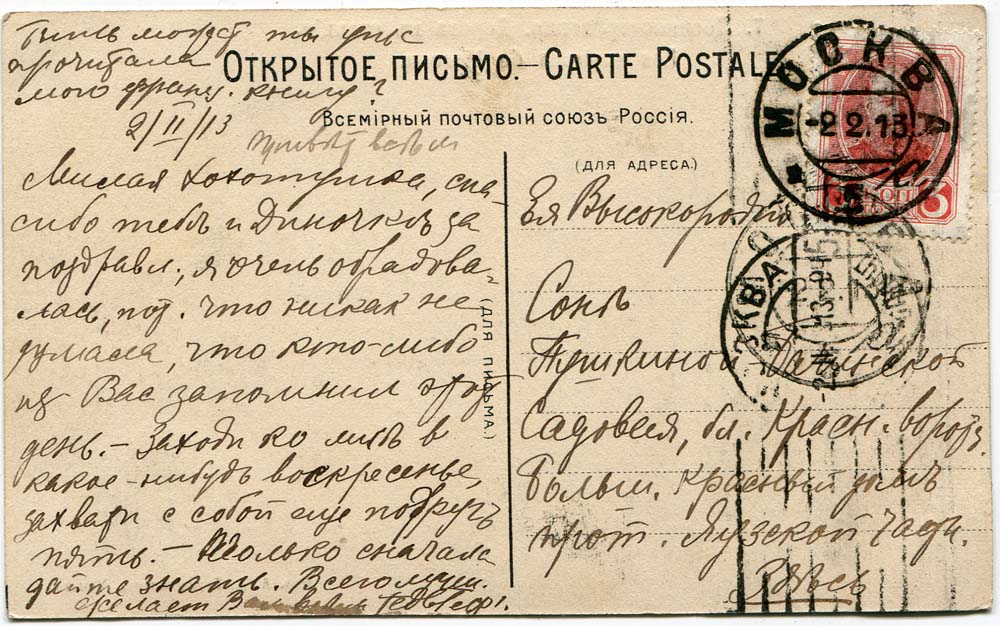 Быть может ты уже
прочитала
мою франц. книгу?
2/II/13
ОТКРЫТОЕ ПИСЬМО.—CARTE POSTALE
ВСЕМІРНЫЙ ПОЧТОВЫЙ СОЮЗЪ РОССІЯ.
привѣтъ всѣмъ
Милая хохотушка, спа-
сибо тебѣ и Диночкѣ за
поздравл., я очень обрадова-
лась, пот. что никак не
думала, что кто-либо
из Вас запомнил этот
день. – Заходи ко мнѣ в
какое-нибудь воскресенье,
захвати с собой еще подругъ
пять. – Только сначала
дайте знать. Всего
желает Вам
(ДЛЯ ПИСЬМА.)
(ДЛЯ АДРЕСА.)
Ея Высокородію
Сонѣ
Пушкиной
Садовая, бл. Красн. воротъ
Больш. красный домъ
прот. Яузской части.
Здѣсь
МОСКВА
-2 2.13
5
МОСКВА